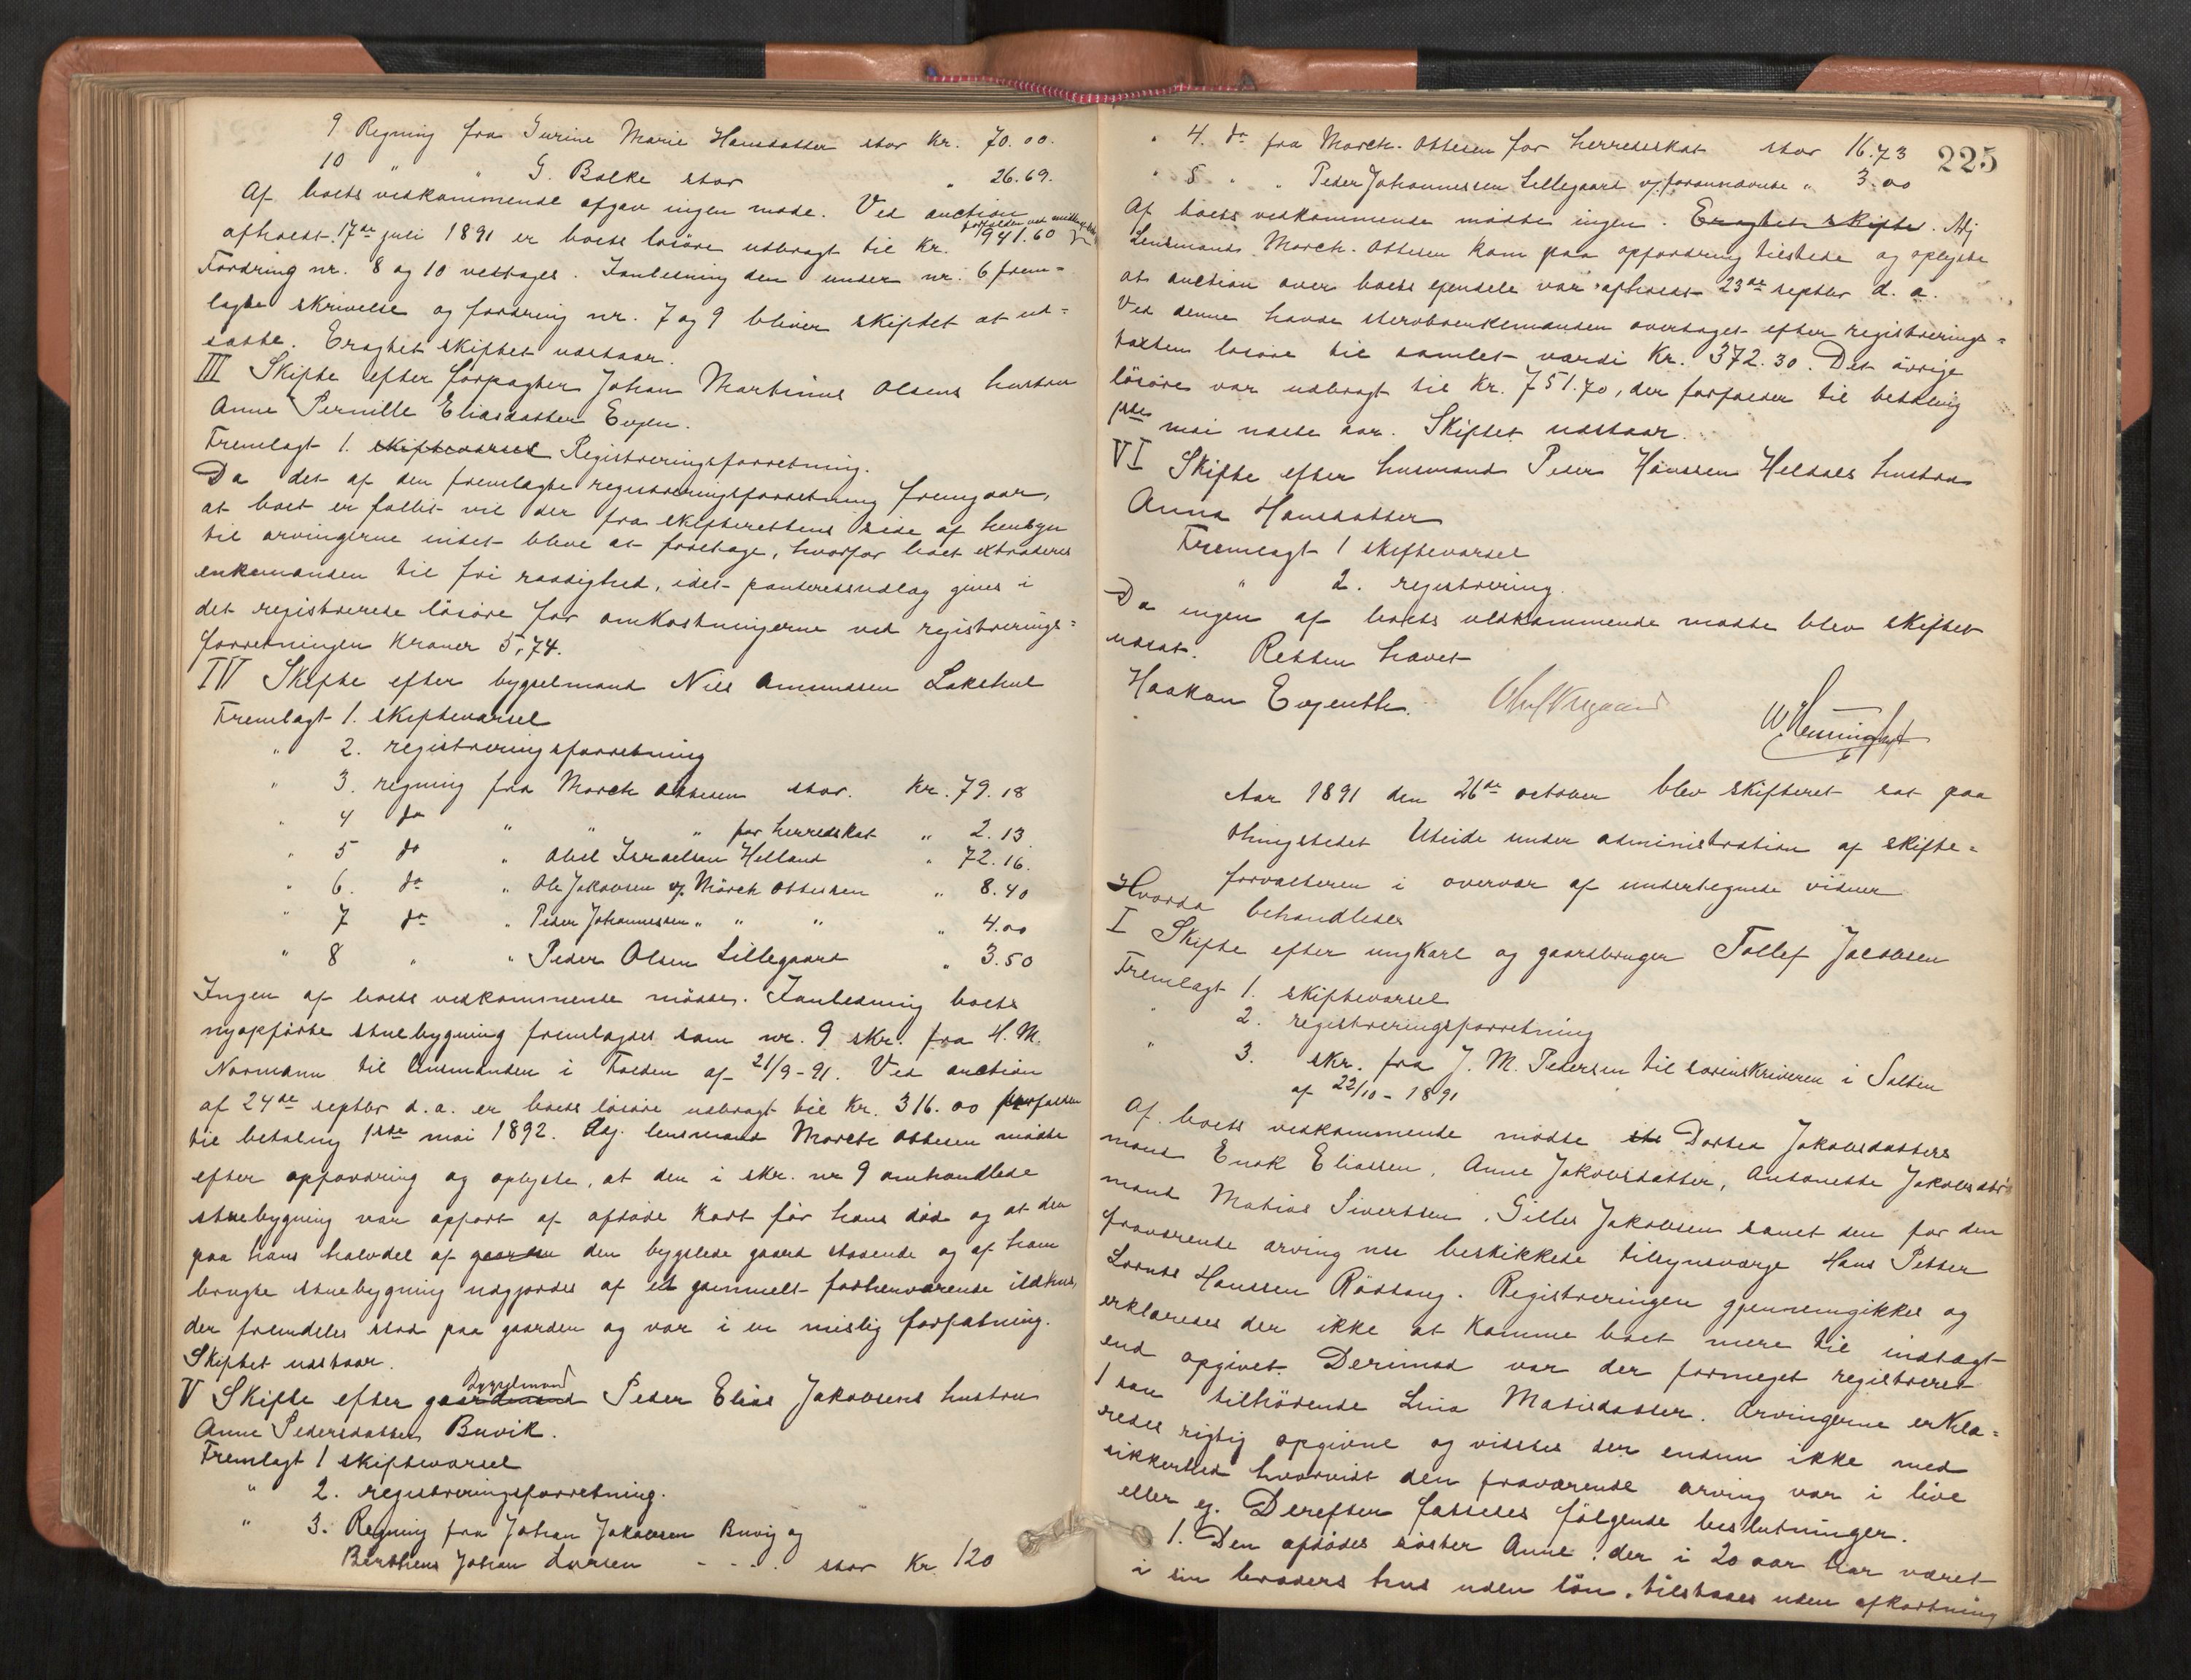 9 Regning fra Gurine Marie Hansdatter stor Kr. 70.00.
10 " " G. Bolke stor " 26.69.
Af boets vedkommende afgav ingen møde. Ved auction
afholdt 17de juli 1891 er boets løsøre udbragt til Kr. 941.60
Fordring nr. 8 og 10 vedtages. I anledning den under nr. 6 frem=
lagte skrivelse og fordring nr. 7 og 9 bliver skiftet at ud=
sætte. Eragtet skiftet udstaar.
III Skifte efter forpagter Johan Martinus Olsens hustru
Anne Pernille Eliasdatter Evjen.
Fremlagt 1. skiftevarsel Registreringsforretning.
Da det af den fremlagte registreringsforretning fremgaar,
at boet er fallit vil der fra skifterettens side af hensyn
til arvingerne intet blive at foretage, hvorfor boet extraderes
enkemanden til fri raadighed, idet panteretsudlæg gives i
det registrerede løsøre for omkostningerne ved registrerings=
forretningen Kroner 5,74.
IV Skifte efter bygselmand Nils Amundsen Lakshul
Fremlagt 1. skiftevarsel
" 2. registreringsforretning
" 3. regning fra Morch Ottesen stor. Kr. 79.18
" 4 do " " " for herredskat " 2.13
" 5 do " Abel Israelsen Helland " 72.16
" 6. do " Ole Jakobsen v/ Mörch Ottesen " 8.40
" 7 do " Peder Johannessen " " " " 4.00
" 8 " " Peder Olsen Lillegaard " 3.50
Ingen af boets vedkommende mödte. I anledning boets
nyopførte stuebygning fremlagdes som nr. 9 skr. fra H. M.
Normann til lensmanden i Folden af 21/9-91. Ved auction
af 24de septbr d.a. er boets løsøre udbragt til Kr. 316.00 forfalden
til betaling 1ste mai 1892. Adj. lensmand Morch Ottesen mødte
efter opfordring og oplyste, at den i skr. nr 9 omhandlede
stuebygning var opført af afdøde kort før hans død og at den
paa hans halvdel af gaarden den bygslede gaard staaende og af ham
brugte stuebygning udgjordes af et gammelt forhenværende ildhus,
der fremdeles stod paa gaarden og var i en mislig forfatning.
Skiftet udstaar.
Bygselmand
V Skifte efter gaardmand Peder Elias Jakobsens hustru
Anne Pedersdatter Buvik.
Fremlagt 1 skiftevarsel
" 2. registreringsforretning.
" 3. Regning fra Johan Jakobsen Buvig og
Berthens Johan Larsen - - - . stor Kr. 120
225
" 4. do fra Morch-Ottesen for herredsskat stor 16.73
" 5 " " Peder Johannessen Lillegaard v/ forannævnte " 3.00
Af boets vedkommende mødte ingen. Eragtet skifte. Adj
Lensmand Morch-Ottesen kom paa opfordring tilstede og oplyste
at auction over boets eiendele var afholdt 23de septbr d.a.
Ved denne havde sterbboenkemanden overtaget efter registrerings=
taxten løsøre til samlet værdi Kr. 372.30. Det øvrige
løsøre var udbragt til Kr. 751.70, der forfalder til betaling
1ste mai næste aar. Skiftet udstaar.
VI Skifte efter husmand Peder Hanssen Heldals hustru
Anna Hansdatter
Fremlagt 1 skiftevarsel
" 2. registrering.
Da ingen af boets vedkommende mødte blev skiftet
udsat. Retten hævet
Haakon Evjenth.
Aar 1891 den 26de october blev skifteret sat paa
thingstedet Uteide under administration af skifte=
forvalteren i overvær af undertegnede vidner
Hvorda behandledes
I Skifte efter ungkarl og gaardbruger Tollef Jacobsen
Fremlagt 1. skiftevarsel
" 2. registreringsforretning
" 3. skr. fra J. M. Pedersen til sorenskriveren i Salten
af 22/10-1891
Af boets vedkommende mødte Dortea Jakobsdatters
mand Enok Eliassen, Anne Jakobsdatter, Antonette Jakobsdtrs
mand Matias Sivertsen, Gilles Jakobsen samt den for den
fraværende arving nu beskikkede tilsynsværge Hans Petter
Lornts Hanssen Rödtang. Registreringen gjennemgikkes og
erklæredes der ikke at komme boet mere til indtægt
end opgivet. Derimod var der formeget registreret
1 sau tilhørende Lina Matisdatter. Arvingerne erklæ=
redes rigtig opgivne og vidstes der endnu ikke med
sikkerhed hvorvidt den fraværende arving var i live
eller ej. Derefter fattedes følgende beslutninger.
1. Den afdødes søster Anne, der i 20 aar har været
i sin broders hus uden løn, tilstaaes uden afkortning